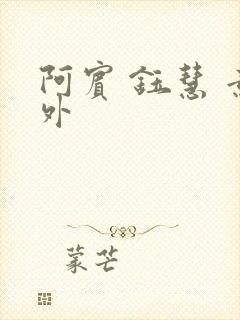 阿賓 鈺慧
外
蒙芒